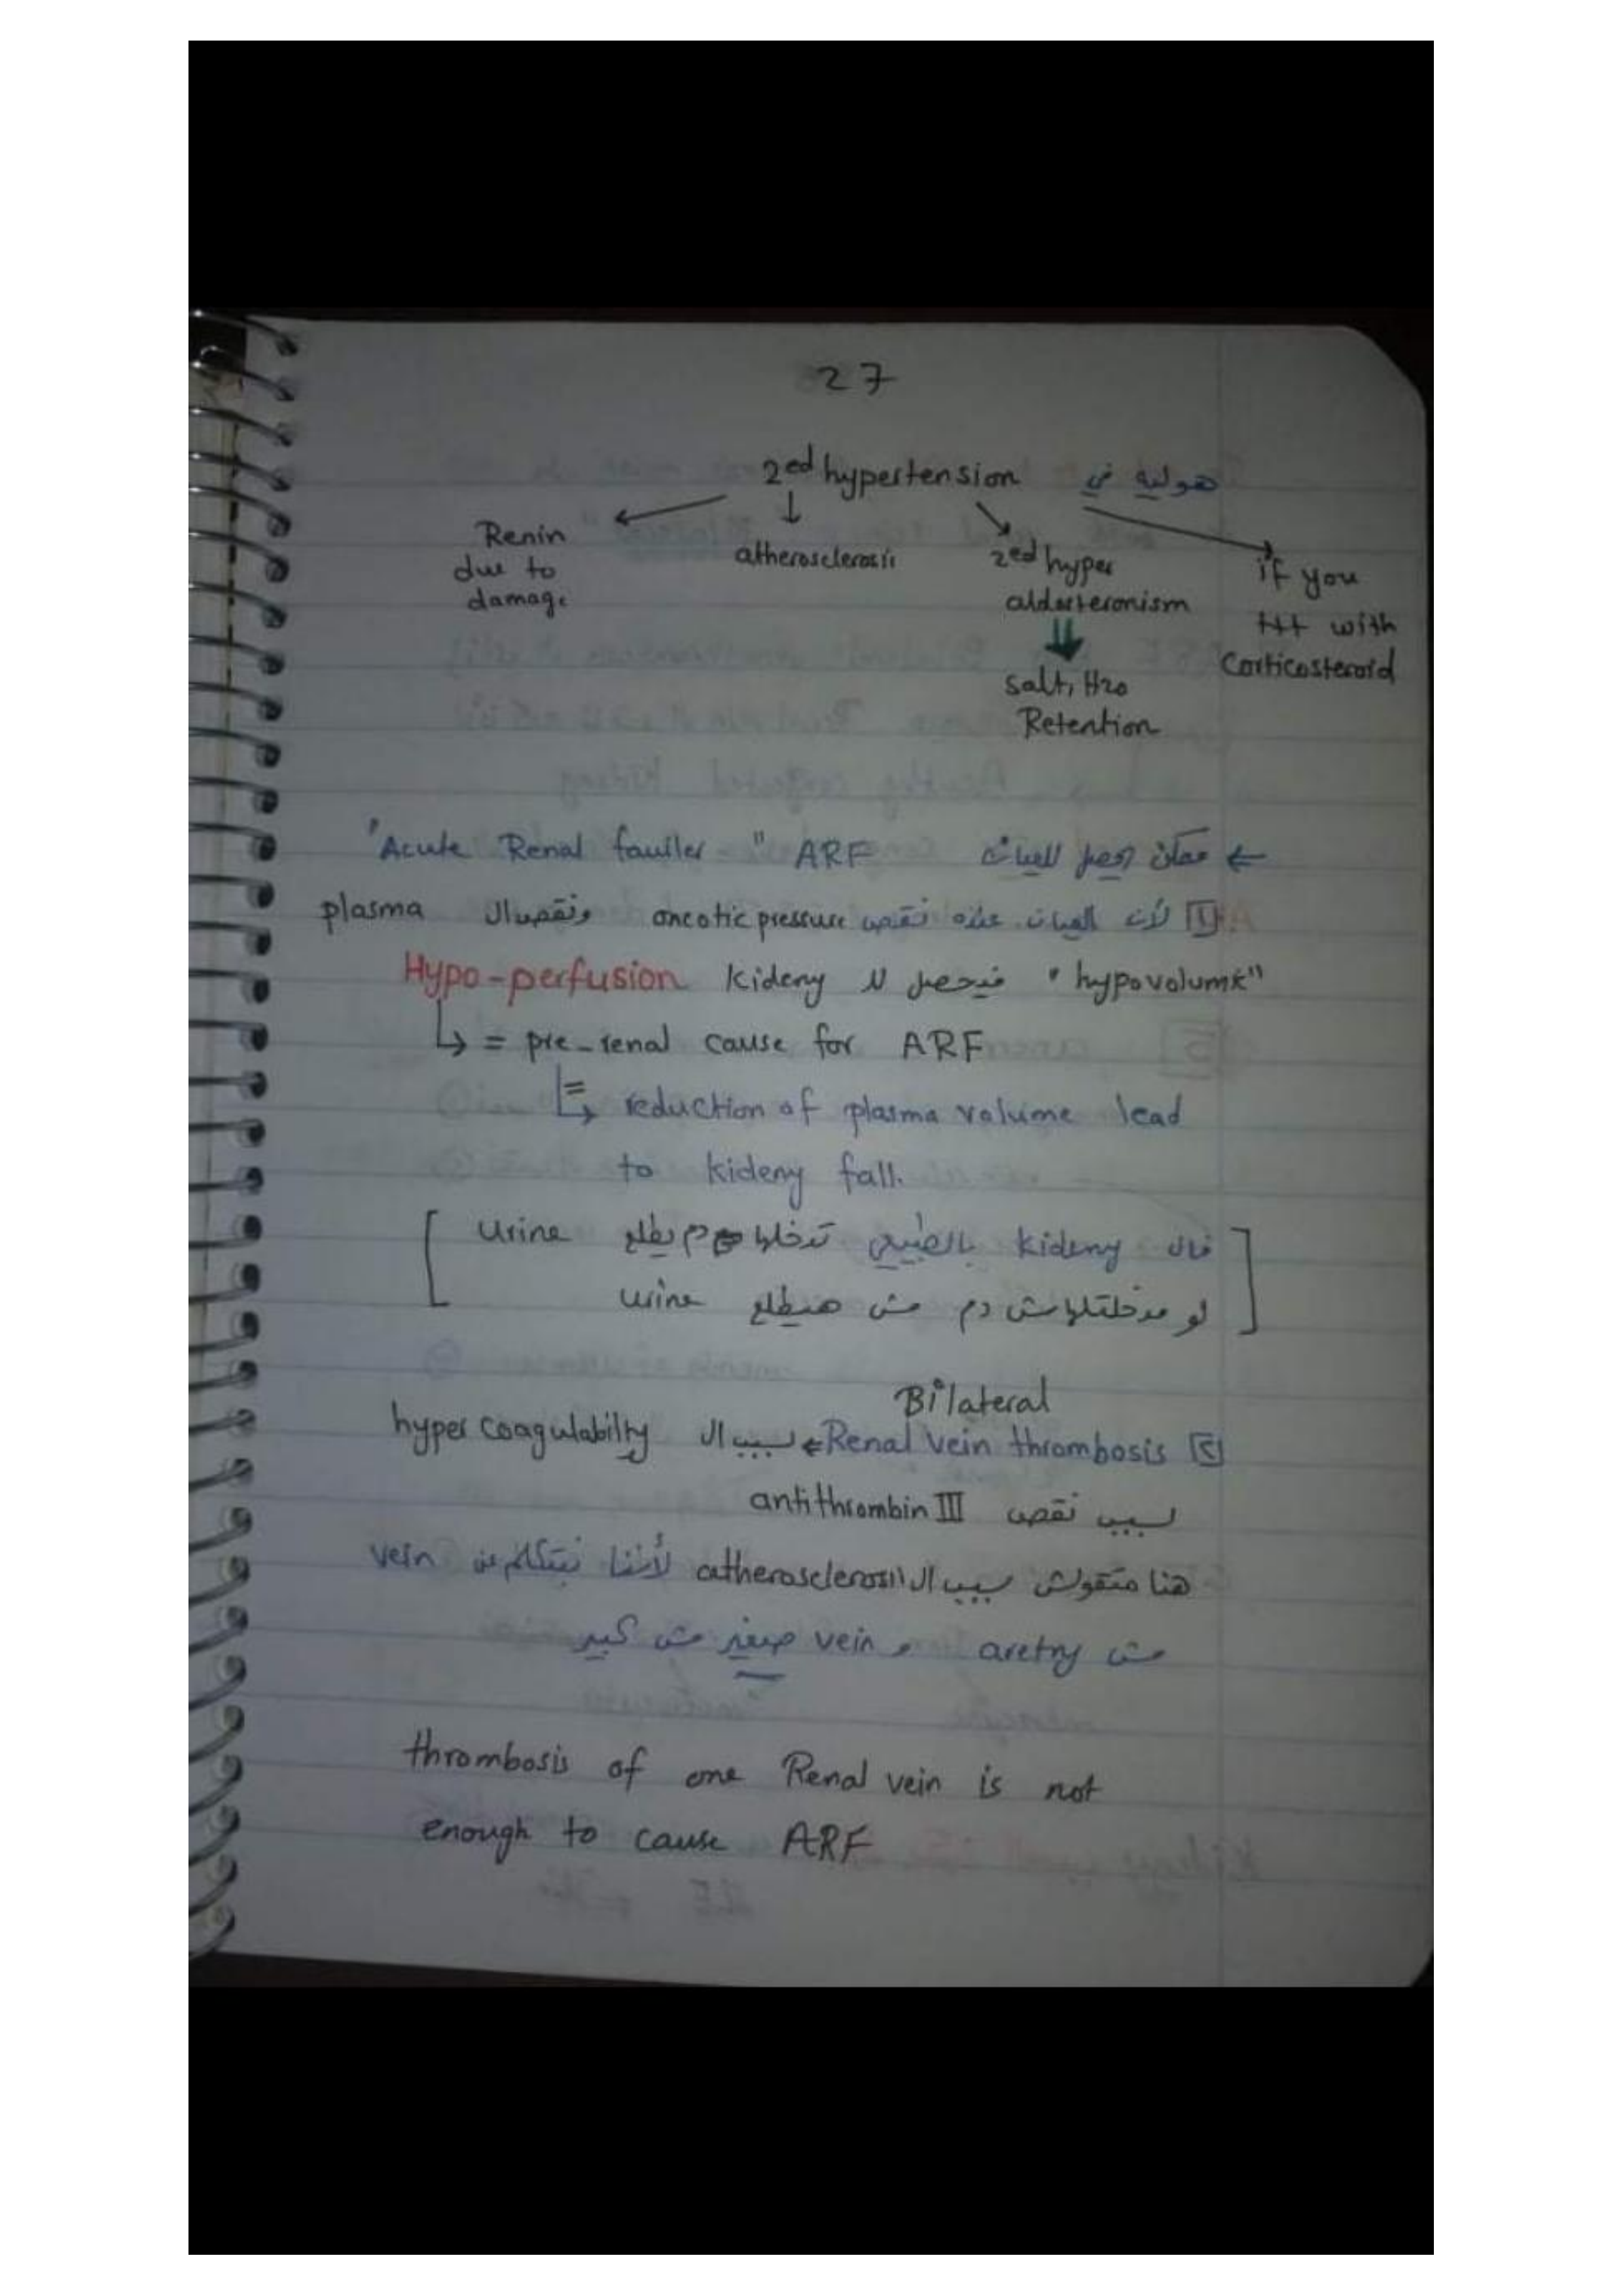 27
هو ليه في 2ed hypertension
Renin
due to
damage
atherosclerosis
2ed hyper
aldosteronism
salt, H2O
Retention
if you
ttt with
Corticosteroid
← ممكن يحصل للعيان ARF "Acute Renal fauiler"
[1] لأن العيان عنده نقص oncotic pressure ونقص ال plasma
"hypovolumE" فيحصل لل Kideny Hypo-perfusion
↳ = pre-renal cause for ARF
= ↳ reduction of plasma volume lead
to kideny fall.
[ فال kideny بالطبيعي تدخلها دم يطلع urine
لو مدخلتلهاش دم مش هيطلع urine ]
Bilateral
[2] Renal vein thrombosis ← بسبب ال hyper coagulabilty
بسبب نقص antithrombin III
هنا متقولش بسبب ال atherosclerosis لأننا نبتكلم عن vein
مش aretry و vein صغير مش كبير
thrombosis of one Renal vein is not
enough to cause ARF